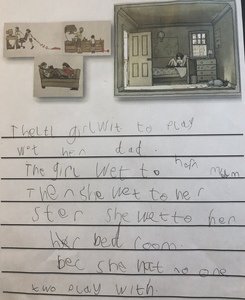 The ltl girl wit to play
wot her dad.
The girl wet to help mum
Then she wet to her
ster she wet to her
her bed room.
bec she hat no one
two play with.